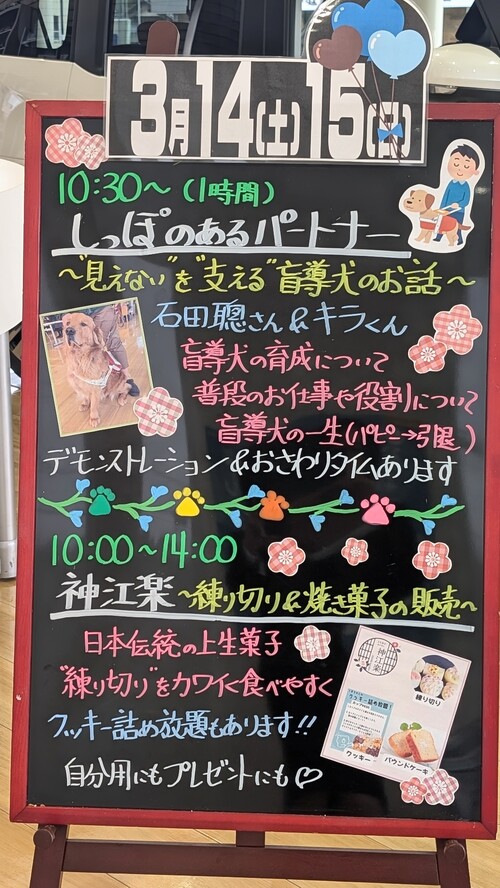 3月14(土)15(日)
10:30〜(1時間)
しっぽのあるパートナー
〜"見えない"を"支える"盲導犬のお話〜
石田聰さん&キラくん
盲導犬の育成について
普段のお仕事や役割について
盲導犬の一生(パピー→引退)
デモンストレーション&おさわりタイムあります
10:00〜14:00
神江楽 〜練り切り&焼き菓子の販売〜
日本伝統の上生菓子
"練り切り"をカワイく食べやすく
クッキー詰め放題もあります!!
自分用にもプレゼントにも♡
神江楽
練り切り
クッキー詰め放題
クッキー
パウンドケーキ